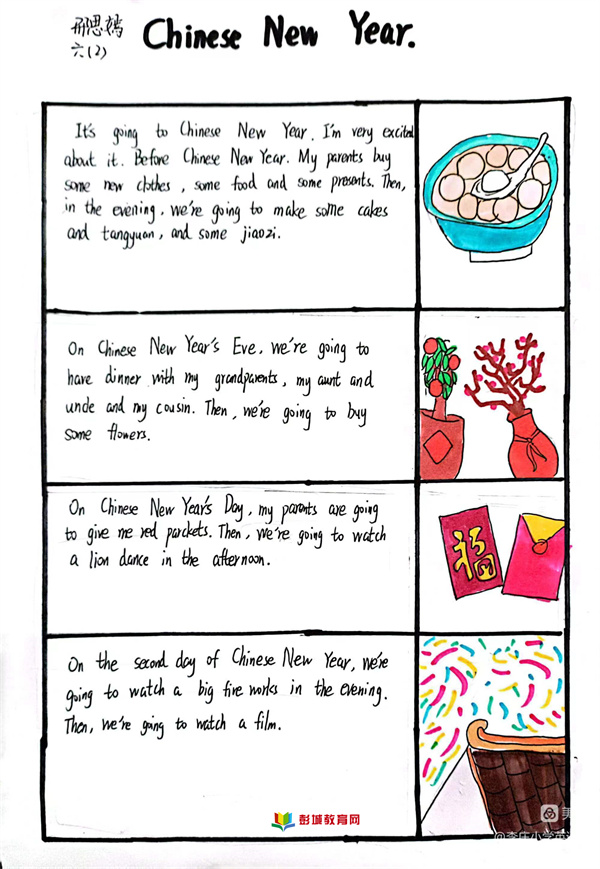 Chinese New Year.
六(2)
It's going to Chinese New Year. I'm very excited
about it. Before Chinese New Year. My parents buy
some new clothes, some food and some presents. Then,
in the evening, we're going to make some cakes
and tangyuan, and some jiaozi.
On Chinese New Year's Eve, we're going to
have dinner with my grandparents, my aunt and
uncle and my cousin. Then, we're going to buy
some flowers.
On Chinese New Year's Day, my parents are going
to give me red parckets. Then, we're going to watch
a lion dance in the afternoon.
福
On the second day of Chinese New Year, we're
going to watch a big fire works in the evening.
Then, we're going to watch a film.
彭城教育网
美
@李庄小学英